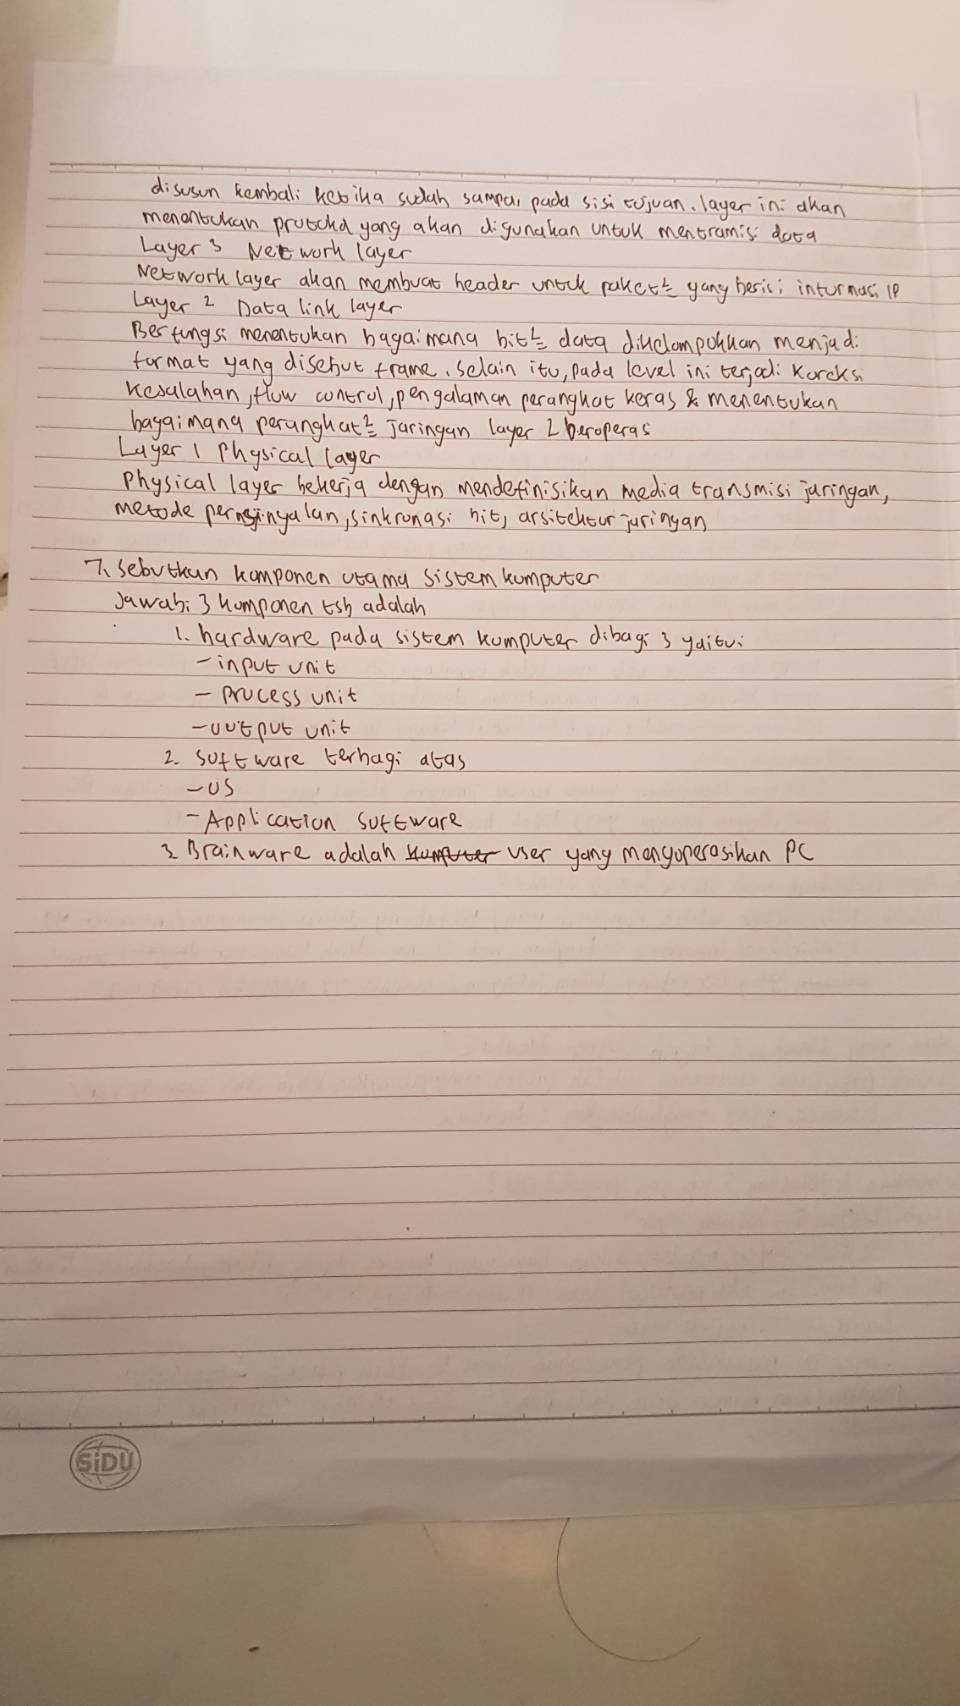 disusun kembali ketika sudah sampai pada sisi tujuan. layer ini akan
menentukan protokol yang akan digunakan untuk mentramisi data
Layer 3 Network layer
Network layer akan membuat header untuk paket² yang berisi informasi IP
Layer 2 Data link layer
Berfungsi menentukan bagaimana bit² data dikelompokkan menjadi
format yang disebut frame. Selain itu, pada level ini terjadi koreksi
kesalahan, flow control, pengalaman perangkat keras & menentukan
bagaimana perangkat² jaringan layer 2 beroperasi
Layer 1 Physical layer
Physical layer bekerja dengan mendefinisikan media transmisi jaringan,
metode pernsinyalan, sinkronasi bit, arsitektur jaringan
7. Sebutkan komponen utama sistem komputer
Jawab: 3 komponen tsb adalah
1. hardware pada sistem komputer dibagi 3 yaitu:
- input unit
- process unit
- output unit
2. software terbagi atas
- OS
- Application software
3. Brainware adalah komputer user yang mengoperasikan PC
SiDU